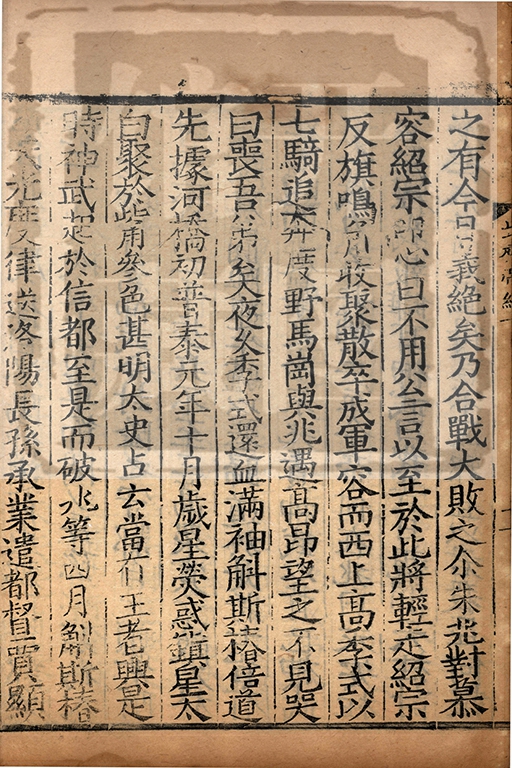 之有今日義絶矣乃合戰大敗之尒朱兆對慕
容紹宗叩心曰不用公言以至於此將輕走紹宗
反旗鳴角收聚散卒成軍容而西上高季式以
七騎追奔度野馬崗與兆遇高昂望之不見哭
曰喪吾弟矣夜久季式還血滿袖斛斯椿倍道
先據河橋初普泰元年十月歲星熒惑鎮星太
白聚於觜角參色甚明太史占云當有王者興是
時神武起於信都至是而破兆等四月斛斯椿
天光度律送洛陽長孫承業遣都督賈顯